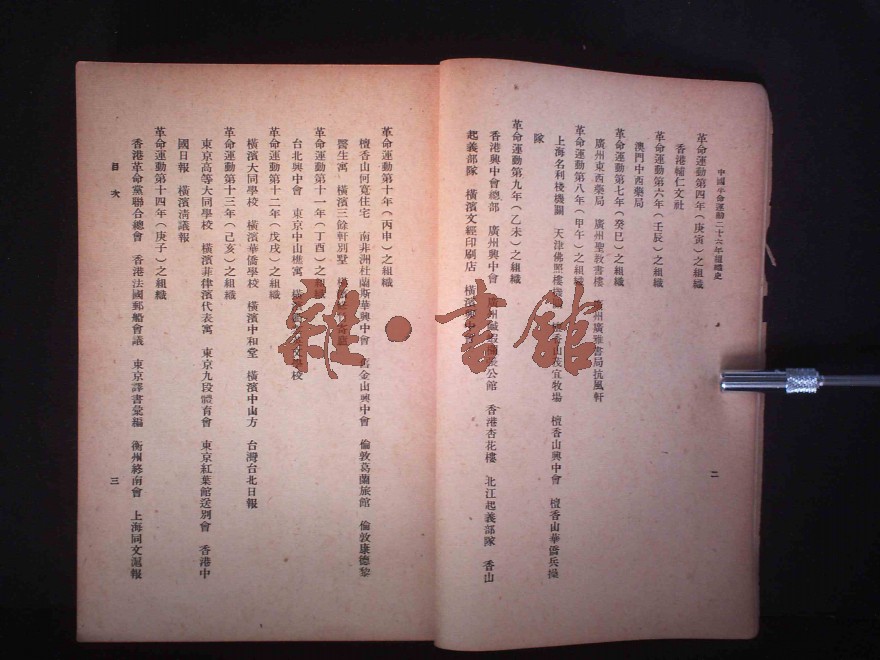 中國革命運動二十六年組織史
二
革命運動第四年（庚寅）之組織
香港輔仁文社
革命運動第六年（壬辰）之組織
澳門中西藥局
革命運動第七年（癸巳）之組織
廣州東西藥局　廣州聖教書樓　廣州廣雅書局抗風軒
革命運動第八年（甲午）之組織
上海名利棧機關　天津佛照樓　檀香山　宜牧場　檀香山興中會　檀香山華僑兵操
隊
革命運動第九年（乙未）之組織
香港興中會總部　廣州興中會　廣州　公館　香港杏花樓　北江起義部隊　香山
起義部隊　橫濱文經印刷店　橫濱興中會
革命運動第十年（丙申）之組織
檀香山何寬住宅　南非洲杜蘭斯華興中會　舊金山興中會　倫敦葛蘭旅館　倫敦康德黎
醫生寓　橫濱三餘軒別墅　橫濱
革命運動第十一年（丁酉）之組織
台北興中會　東京中山樵寓　橫濱　學校
革命運動第十二年（戊戌）之組織
橫濱大同學校　橫濱華僑學校　橫濱中和堂　橫濱中山方　台灣台北日報
革命運動第十三年（己亥）之組織
東京高等大同學校　橫濱菲律濱代表寓　東京九段體育會　東京紅葉館送別會　香港中
國日報　橫濱清議報
革命運動第十四年（庚子）之組織
香港革命黨聯合總會　香港法國郵船會議　東京譯書彙編　衡州終南會　上海同文滬報
目次
三
雜·書館